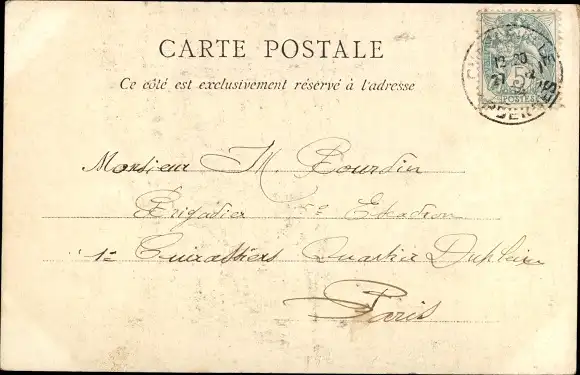 CARTE POSTALE
Ce côté est exclusivement réservé à l'adresse
13 20
27
5
POSTES
Monsieur M. Bourdin
Brigadier 5e Escadron
1e Cuirassiers Quartier Dupleix
Paris